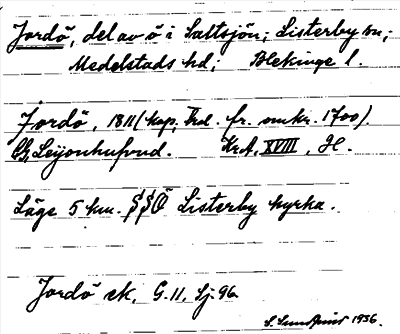 Jordö, del av ö i Saltsjön; Listerby sn;
Medelstads hd; Blekinge l.
Jordö, 1811 (kop. trol. fr. omkr. 1700).
Ch. Leijonhufvud. Krt. XVIII, H.
Läge 5 km. SSÖ Listerby kyrka.
Jordö ek. G. 11. Sj. 96
1936.